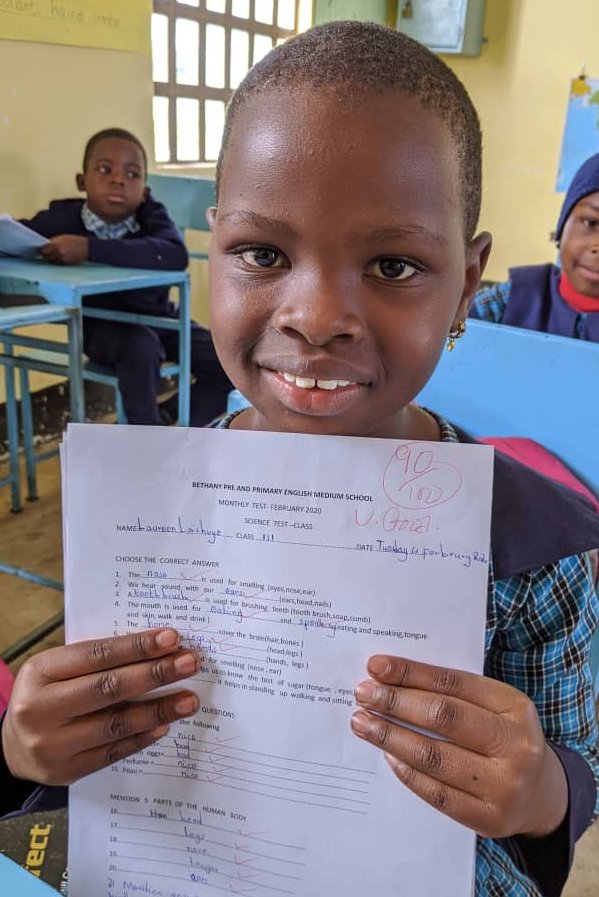 BETHANY PRE AND PRIMARY ENGLISH MEDIUM SCHOOL
MONTHLY TEST- FEBRUARY 2020
SCIENCE TEST –CLASS
90/100
V. Good.
NAME Laureen CLASS III DATE Tuesday
CHOOSE THE CORRECT ANSWER
1. The nose is used for smelling (eyes,nose,ear)
2. We hear sound with our ears (ears,head,nails)
3. A toothbrush is used for brushing teeth (tooth brush,soap,comb)
4. The mouth is used for eating and speaking (eating and speaking,tongue
and skin,walk and drink)
5. The bone cover the brain(hair,bones)
legs (head,legs)
(hands, legs)
d for smelling (nose , ear)
ps us to know the test of sugar (tongue , eyes
it helps in standing up walking and sitting
QUESTIONS
the following
nice
bad
eggs= bad
Perfume = nice
15. Pilau= nice
MENTION 5 PARTS OF THE HUMAN BODY
16 head
17 legs
18 nose
19 tongue
20 ears
21 Mention
ect